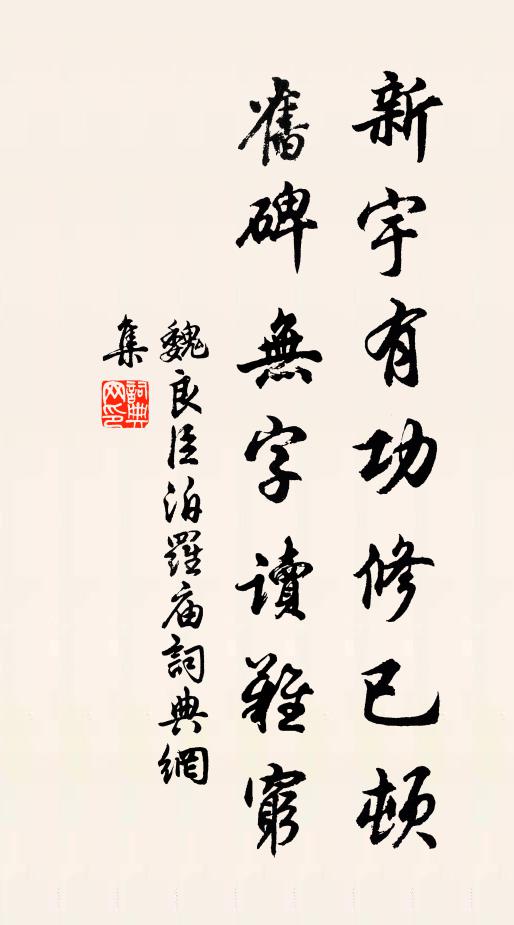 新宇有功修已頓
舊碑無字讀難窮
魏良臣泊羅庙詞典網
集
詞典网印